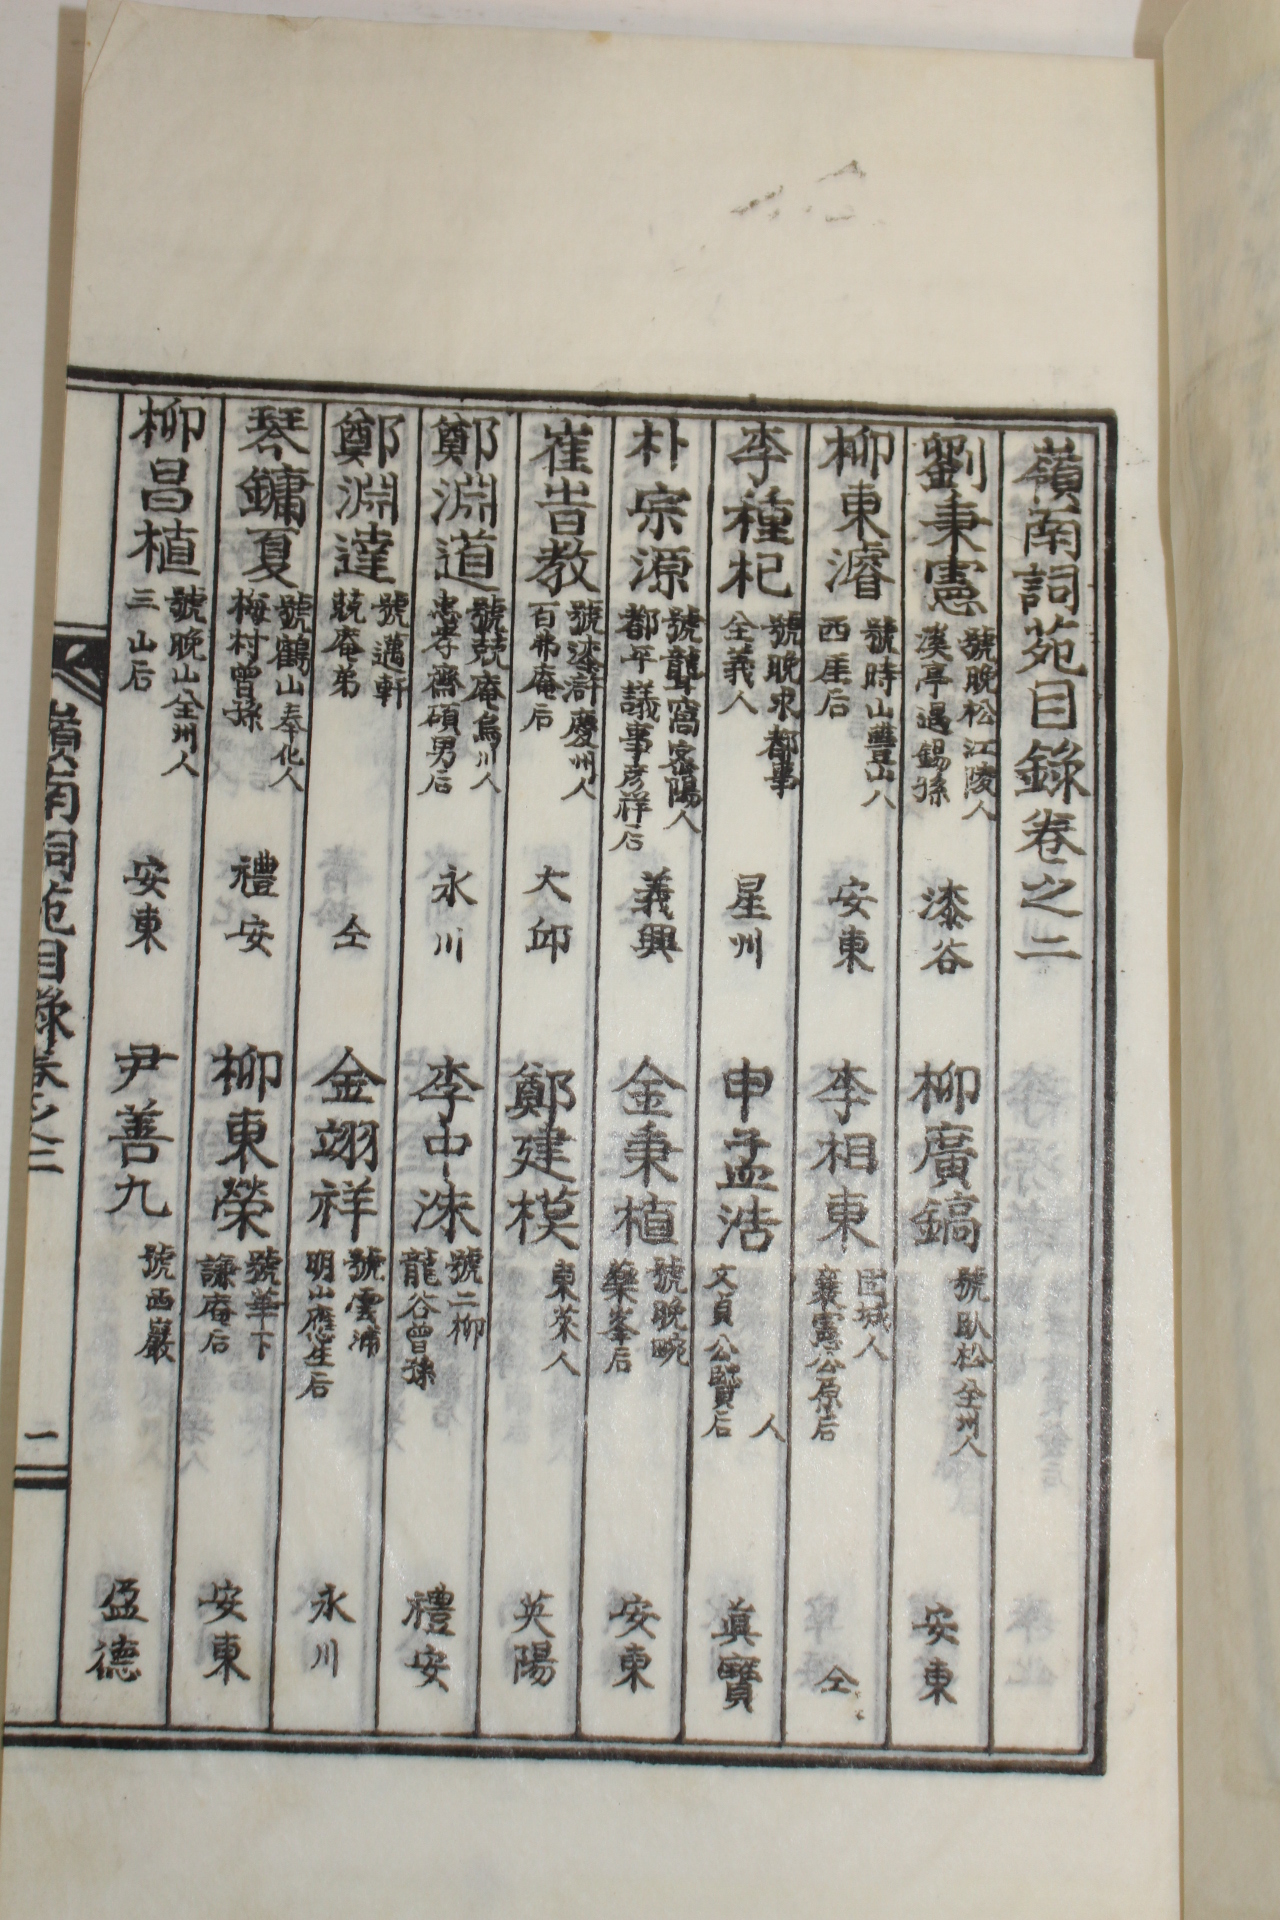 嶺南詞苑目錄卷之二
劉秉憲 號晩松江陵人 溪亭遇錫孫 漆谷 柳廣鎬 號臥松全州人 安東
柳東濬 號時山豐山人 西厓后 安東 李相東 固城人 襄憲公原后 仝
李種杞 號晩求都事 全義人 星州 申孟浩 人 文貞公賢后 眞寶
朴宗源 號龍窩密陽人 都平議事彦祥后 義興 金秉植 號晩畹 藥峯后 安東
崔昔敎 慶州人 百弗庵后 大邱 鄭建模 東萊人 英陽
鄭淵道 號兢庵烏川人 忠孝齋碩男后 永川 李中洙 號二柳 龍谷曾孫 禮安
鄭淵達 號邁軒 兢庵弟 仝 金翊祥 號雲浦 明山應生后 永川
琴鏞夏 號鶴山奉化人 梅村曾孫 禮安 柳東榮 號華下 謙庵后 安東
柳昌植 號晩山全州人 三山后 安東 尹善九 號西巖 盈德
嶺南詞苑目錄卷之二
一